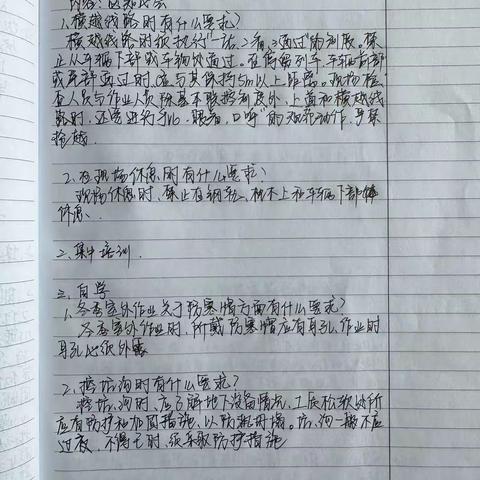 内容:
1、横越线路时有什么要求?
横越线路时须执行"一站、二看、三通过"的制度。禁
止从车辆下部或车钩处通过。在停留列车、车辆前部
或尾部通过时,应与其保持5m以上距离。现场检
查人员与作业人员除 联控制度外,上道和横越线
路时,还需进行手比、眼看、口呼"的规范动作,严禁
抢越。
2、在现场休息时有什么要求?
现场休息时,禁止在钢轨、枕木上和车辆下部
休息、
二、集中培训.
三、自学
1、冬季室外作业关于防寒帽方面有什么要求?
冬季室外作业时,所戴防寒帽应有耳孔,作业时
耳孔必须外露
2、挖坑沟时有什么要求?
挖坑、沟时,应了解地下设备情况,土质松软处所
应有防护和加固措施,以防坍塌。坑、沟一般不应
过夜,不得已时,须采取防护措施